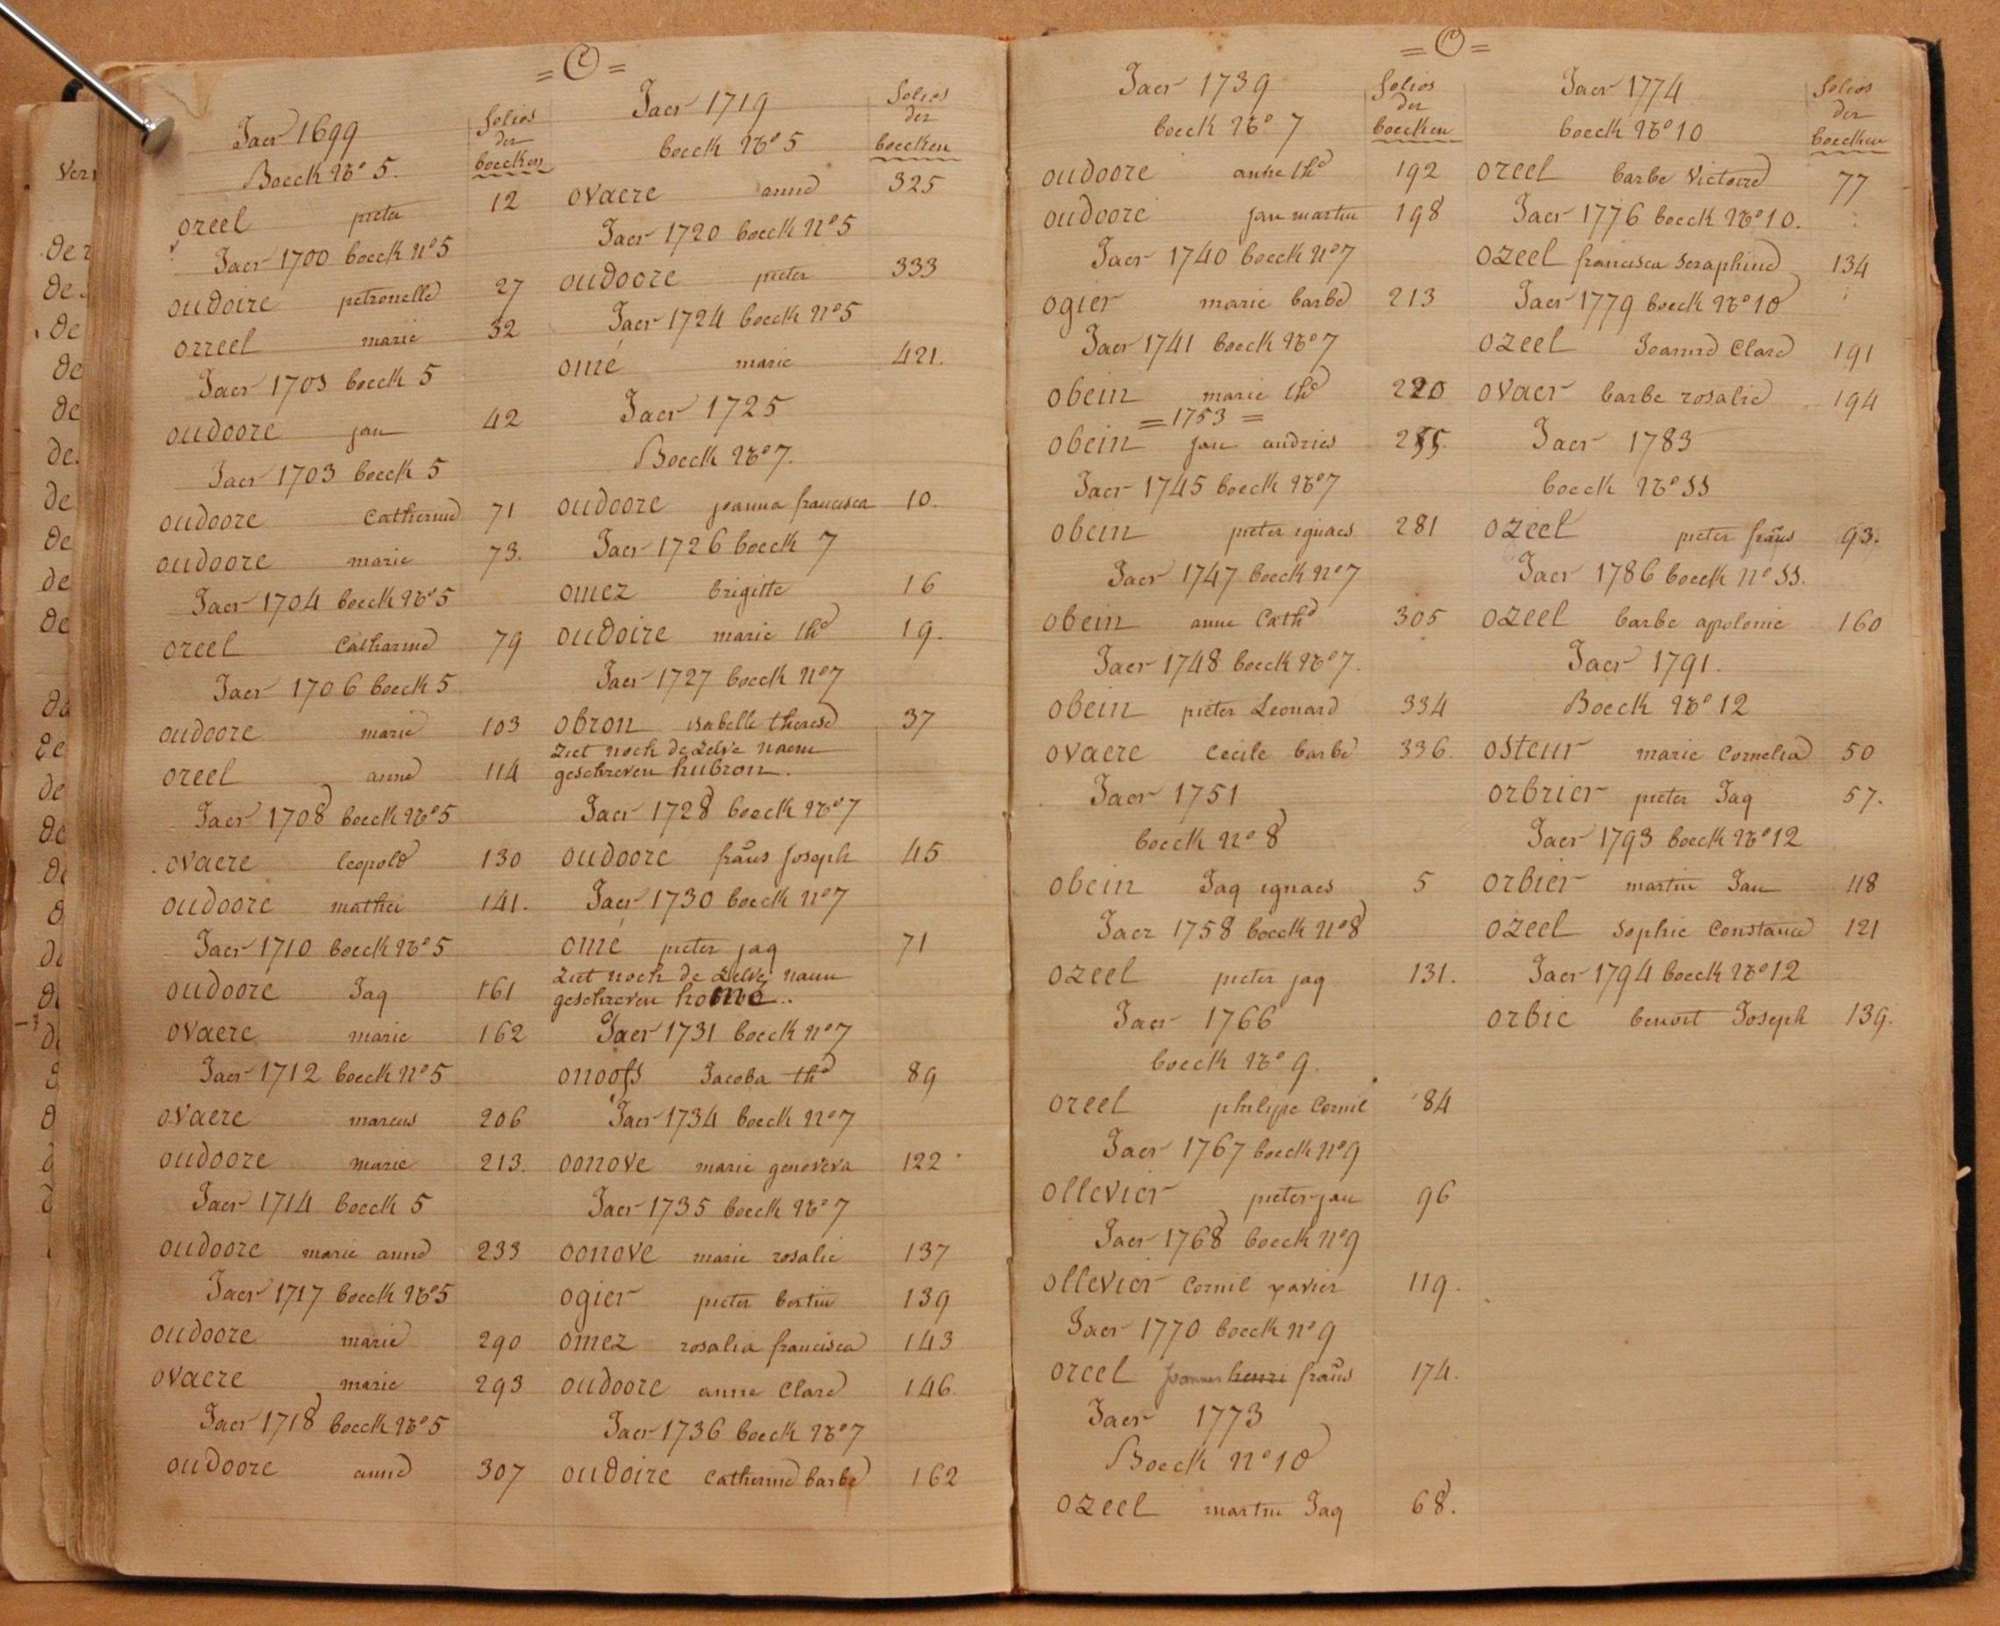 = O =
Jaer 1699
folios
der
boecken
Boeck No 5.
ozeel pieter 12
Jaer 1700 boeck No 5
oudoire petronelle 27
orzeel marie 32
Jaer 1703 boeck 5
oudoore jan 42
Jaer 1703 boeck 5
oudoore Catherine 71
oudoore marie 73.
Jaer 1704 boeck No 5
ozeel Catharine 79
Jaer 1706 boeck 5
oudoore marie 103
ozeel anne 114
Jaer 1708 boeck No 5
ovaere leopold 130
oudoore mathei 141.
Jaer 1710 boeck No 5
oudoore Jaq 161
ovaere marie 162
Jaer 1712 boeck No 5
ovaere marcus 206
oudoore marie 213.
Jaer 1714 boeck 5
oudoore marie anne 233
Jaer 1717 boeck No 5
oudoore marie 290
ovaere marie 293
Jaer 1718 boeck No 5
oudoore anne 307
Jaer 1719
folios
der
boecken
boeck No 5
ovaere anne 325
Jaer 1720 boeck No 5
oudoore pieter 333
Jaer 1724 boeck No 5
omé marie 421.
Jaer 1725
Boeck No 7.
oudoore joanna francisca 10.
Jaer 1726 boeck 7
omez brigitte 16
oudoire marie thé 19.
Jaer 1727 boeck No 7
obron isabelle therese 37
ziet noch de zelve naem
geschreven hubron.
Jaer 1728 boeck No 7
oudoore frans Joseph 45
Jaer 1730 boeck No 7
omé pieter jaq 71
ziet noch de zelve naem
geschreven homé..
Jaer 1731 boeck No 7
onoofs Jacoba thé 89
Jaer 1734 boeck No 7
oonove marie genoveva 122
Jaer 1735 boeck No 7
oonove marie rosalie 137
ogier pieter bertin 139
omez rosalia francisca 143
oudoore anne Clare 146.
Jaer 1736 boeck No 7
oudoire Catherine barbe 162
= O =
Jaer 1739
folios
der
boecken
boeck No 7
oudoore anne thé 192
oudoore jan martin 198
Jaer 1740 boeck No 7
ogier marie barbe 213
Jaer 1741 boeck No 7
obein marie thé 220
= 1753 =
obein jan andries 255.
Jaer 1745 boeck No 7
obein pieter ignaes 281
Jaer 1747 boeck No 7
obein anne Cathe 305
Jaer 1748 boeck No 7.
obein pieter Leonard 334
ovaere Cecile barbe 336.
Jaer 1751
boeck No 8
obein Jaq ignaes 5
Jaer 1758 boeck No 8
ozeel pieter jaq 131.
Jaer 1766
boeck No 9.
ozeel philippe Cornil 84
Jaer 1767 boeck No 9
ollevier pieter jan 96
Jaer 1768 boeck No 9
ollevier Cornil xavier 119.
Jaer 1770 boeck No 9
ozeel Joannes henri frans 174.
Jaer 1773
Boeck No 10
ozeel martin Jaq 68.
Jaer 1774
folios
der
boecken
boeck No 10
ozeel barbe Victoire 77
Jaer 1776 boeck No 10.
ozeel francisca Seraphine 134
Jaer 1779 boeck No 10
ozeel Jeanne Clare 191
ovaer barbe rosalie 194
Jaer 1783
boeck No 11
ozeel pieter frans 93.
Jaer 1786 boeck No 11.
ozeel barbe apolonie 160
Jaer 1791.
Boeck No 12
osteur marie Cornelia 50
orbrier pieter Jaq 57.
Jaer 1793 boeck No 12
orbier martin Jan 118
ozeel Sophie Constance 121
Jaer 1794 boeck No 12
orbie benoit Joseph 139.